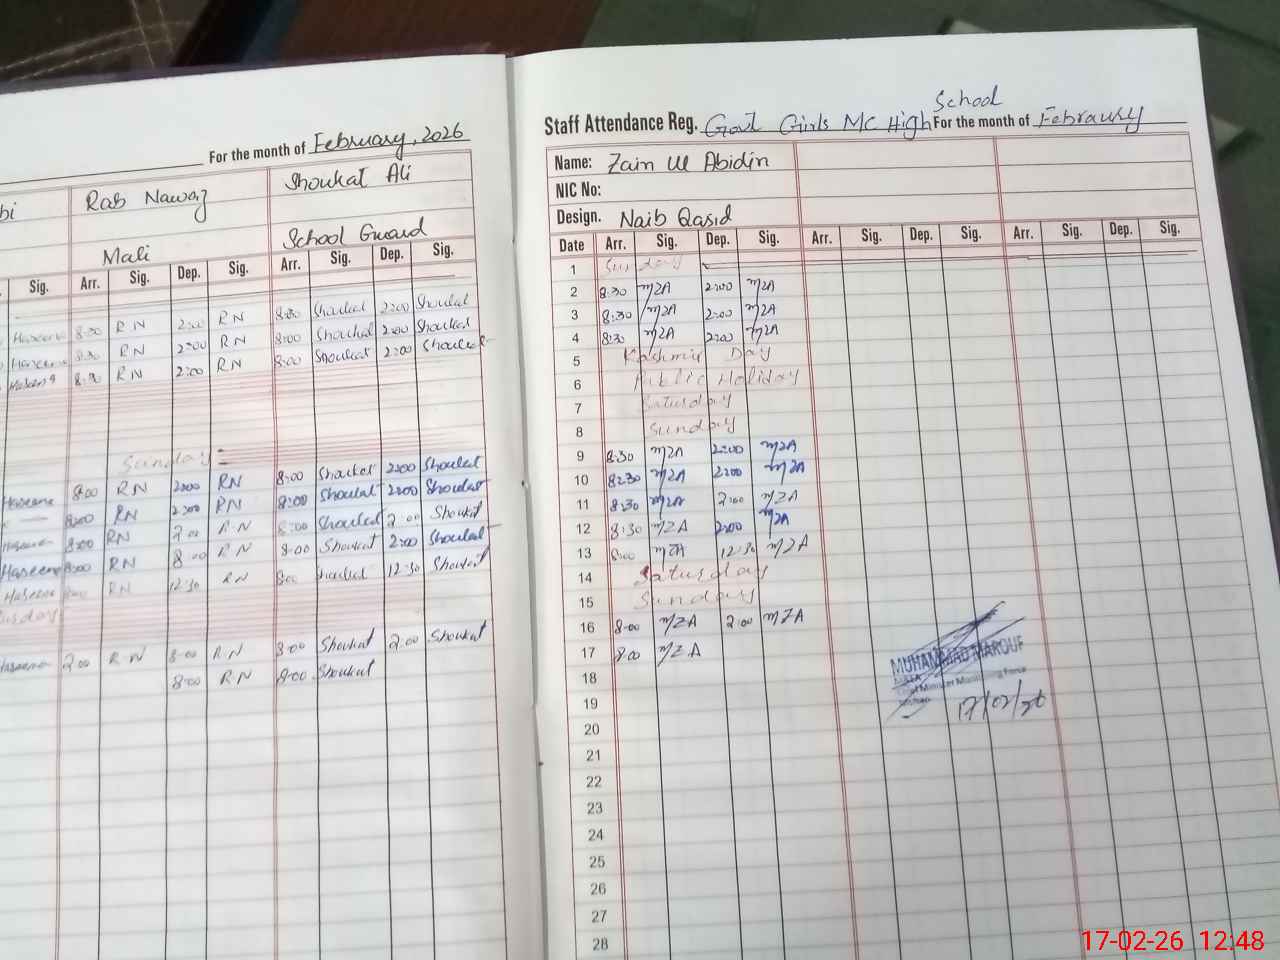 For the month of February, 2026
bi Rab Nawaz Shoukat Ali
Mali School Guard
Sig. Arr. Sig. Dep. Sig. Arr. Sig. Dep. Sig.
Haseena 8:30 RN 2:00 RN 8:00 Shoukat 2:00 Shoukat
Haseena 8:30 RN 2:00 RN 8:00 Shoukat 2:00 Shoukat
Haseena 8:30 RN 2:00 RN 8:00 Shoukat 2:00 Shoukat
Sunday
Haseena 8:00 RN 2:00 RN 8:00 Shoukat 2:00 Shoukat
8:00 RN 2:00 RN 8:00 Shoukat 2:00 Shoukat
Haseena 8:00 RN 2:00 RN 8:00 Shoukat 2:00 Shoukat
Haseena 8:00 8:00 RN 8:00 Shoukat 2:00 Shoukat
Haseena RN 12:30 RN 8:00 Shoukat 12:30 Shoukat
Haseena 2:00 RN 8:00 RN 8:00 Shoukat 2:00 Shoukat
8:00 RN 8:00 Shoukat
Staff Attendance Reg. Govt Girls MC High School For the month of Febraury
Name: Zain Ul Abidin
NIC No:
Design. Naib Qasid
Date Arr. Sig. Dep. Sig. Arr. Sig. Dep. Sig. Arr. Sig. Dep. Sig.
1 Sunday
2 8:30 MZA 2:00 MZA
3 8:30 MZA 2:00 MZA
4 8:30 MZA 2:00 MZA
5 Kashmir Day
6 Public Holiday
7 Saturday
8 Sunday
9 8:30 MZA 2:00 MZA
10 8:30 MZA 2:00 MZA
11 8:30 MZA 2:00 MZA
12 8:30 MZA 2:00 MZA
13 8:00 MZA 12:30 MZA
14 Saturday
15 Sunday
16 8:00 MZA 2:00 MZA
17 8:00 MZA
18
19
20
21
22
23
24
25
26
27
28
MUHAMMAD MAROUF
Chief Minister Monitoring Force
17/02/26
17-02-26 12:48